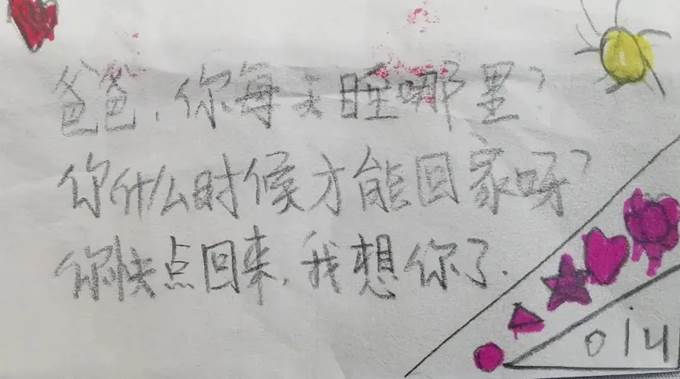 爸爸，你每天睡哪里？
你什么时候才能回家呀？
你快点回来，我想你了．